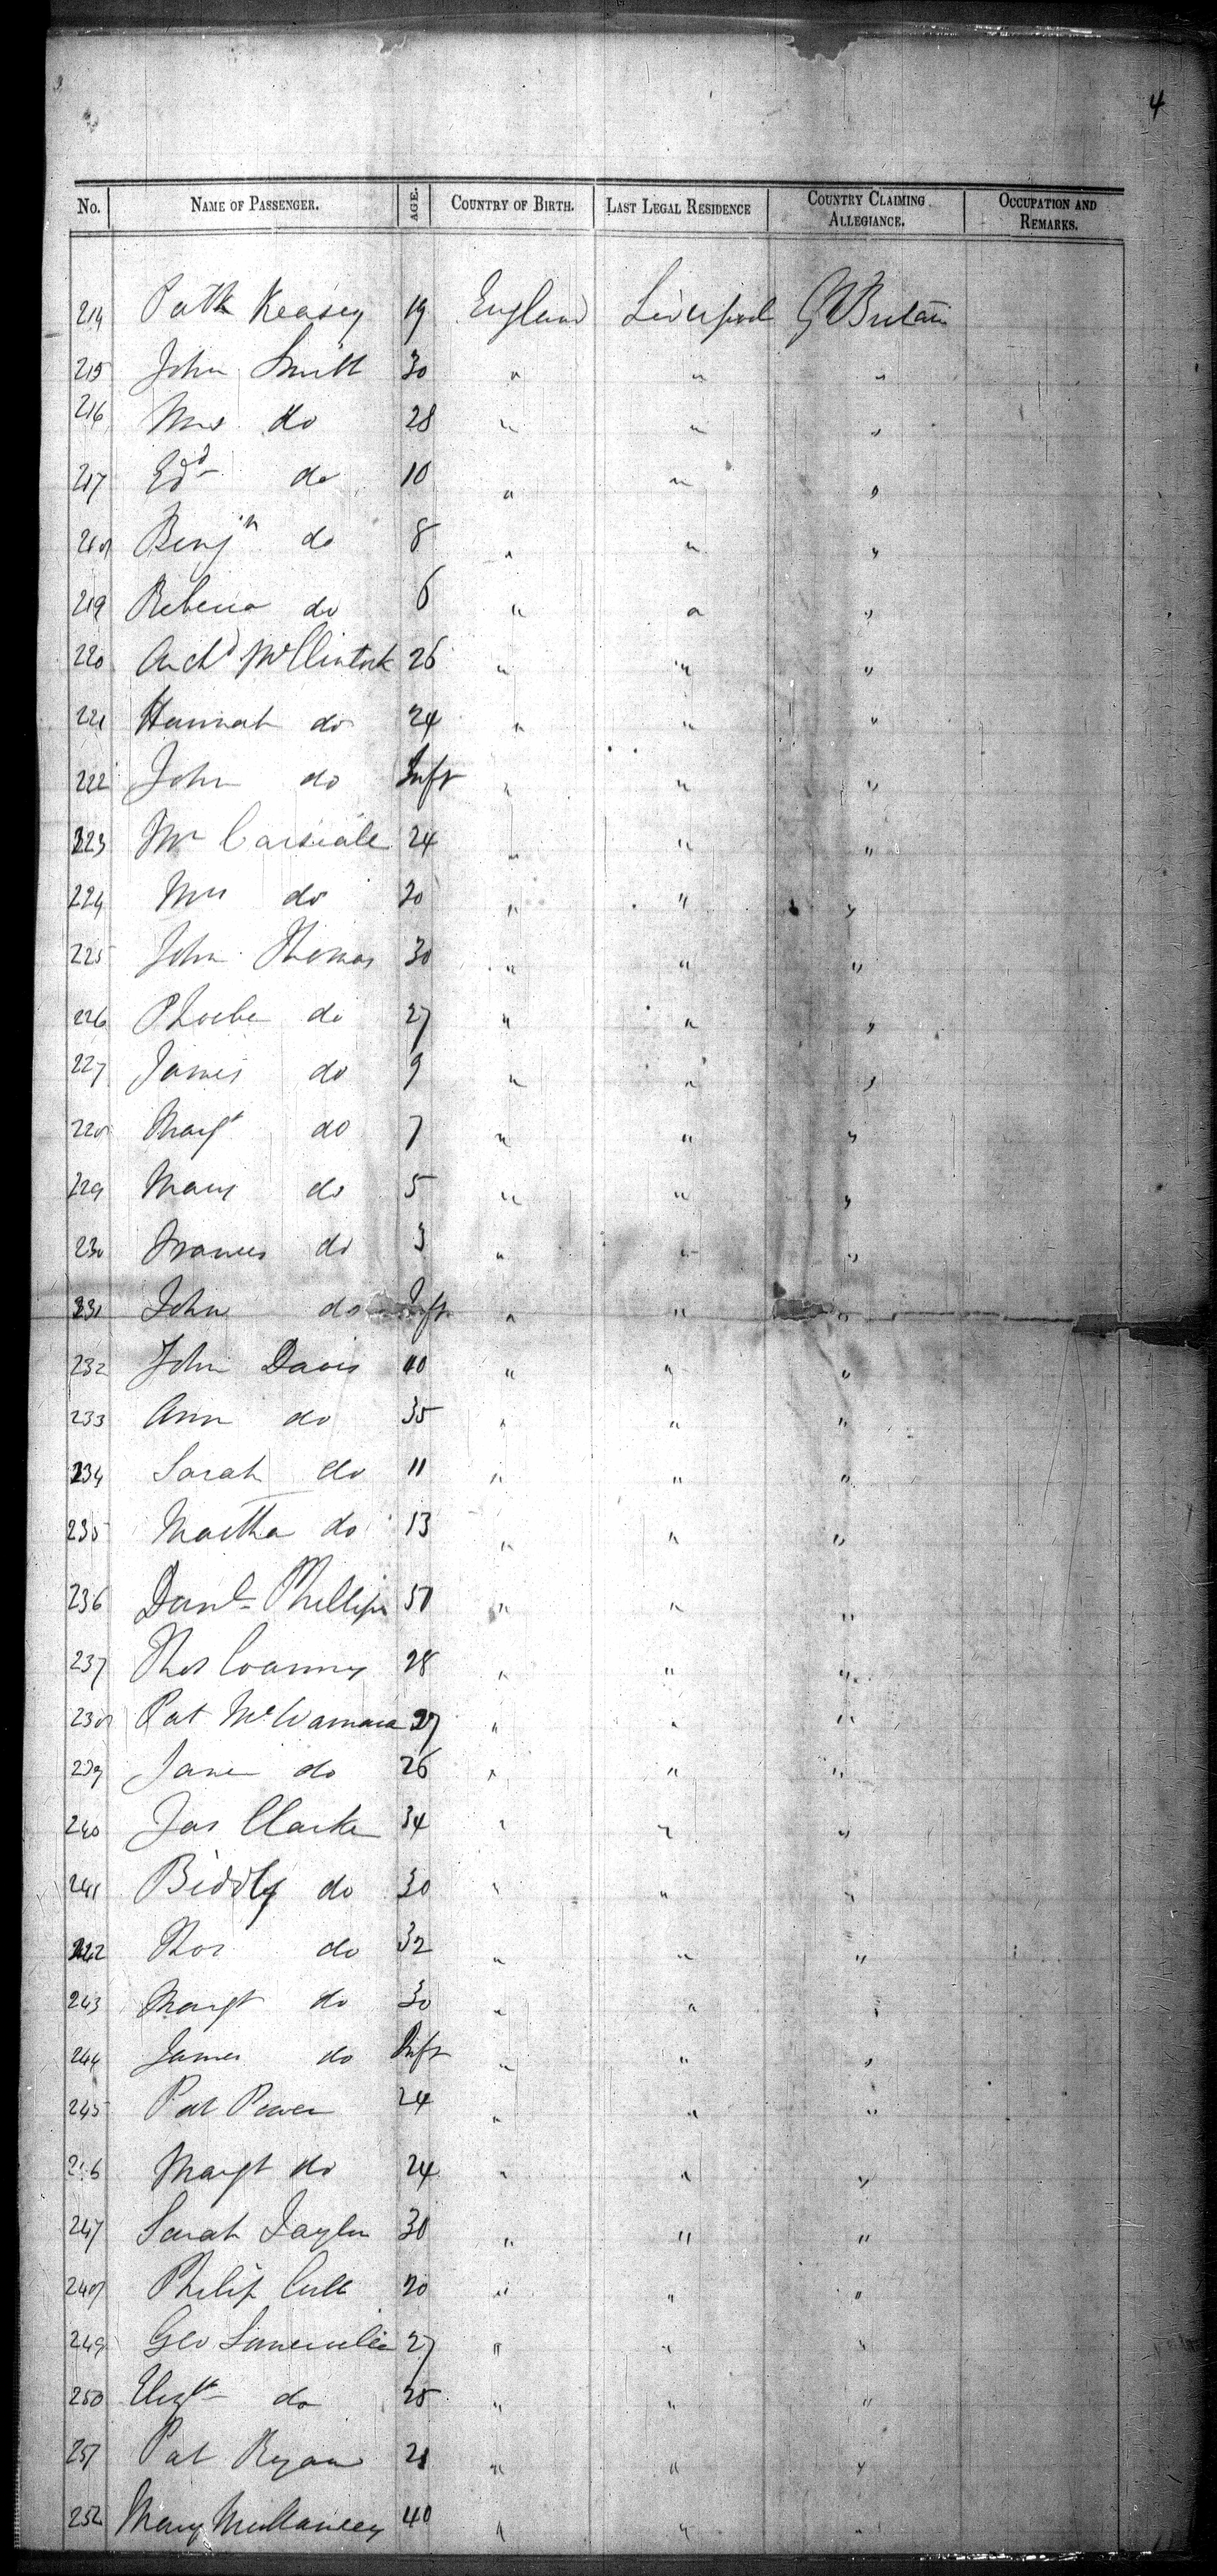 4
No. NAME OF PASSENGER. AGE. COUNTRY OF BIRTH. LAST LEGAL RESIDENCE COUNTRY CLAIMING ALLEGIANCE. OCCUPATION AND REMARKS.
214 Patk Keasey 19 England Liverpool G Britain
215 John Smith 30 " " "
216 Mrs do 28 " " "
217 Edd do 10 " " "
218 Benjn do 8 " " "
219 Rebecca do 6 " " "
220 Archd McClintock 26 " " "
221 Hannah do 24 " " "
222 John do Inft " " "
223 Mr 24 " " "
224 Mrs do 20 " " "
225 John Thomas 30 " " "
226 Phoebe do 27 " " "
227 James do 9 " " "
228 Margt do 7 " " "
229 Mary do 5 " " "
230 Frances do 3 " " "
231 John do Inft " " "
232 John Davis 40 " " "
233 Ann do 35 " " "
234 Sarah do 11 " " "
235 Martha do 13 " " "
236 Danl Phillips 50 " " "
237 Thos 28 " " "
238 Pat McNamara 27 " " "
239 Jane do 26 " " "
240 Jas Clarke 34 " " "
241 Biddy do 30 " " "
242 Thos do 32 " " "
243 Margt do 30 " " "
244 James do Inft " " "
245 Pat Power 24 " " "
246 Margt do 24 " " "
247 Sarah Taylor 30 " " "
248 Philip 20 " " "
249 Geo Somerville 27 " " "
250 Elizth do 25 " " "
251 Pat Ryan 21 " " "
252 Mary Mullaney 40 " " "